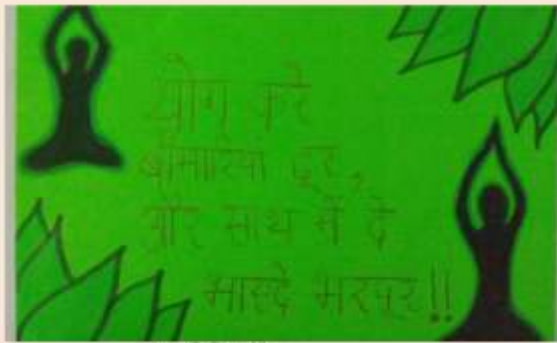 योग करे
बीमारियां दूर,
और साथ में दे
भरपूर!!